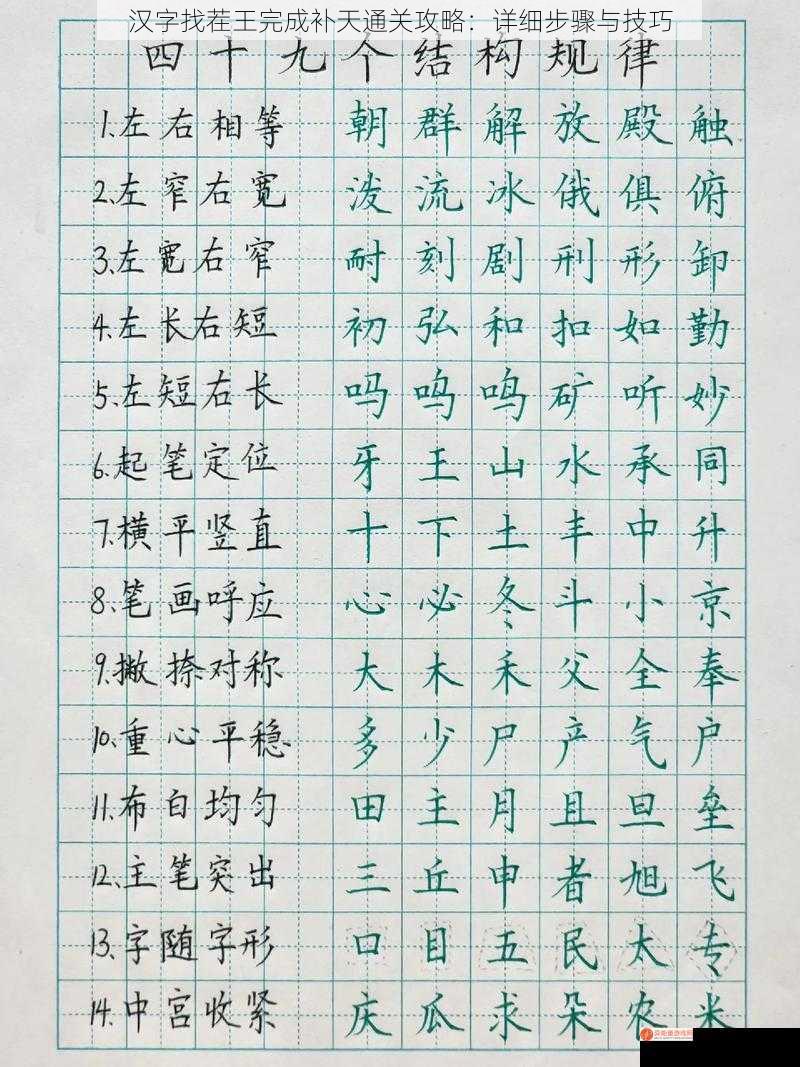 汉字找茬王完成补天通关攻略：详细步骤与技巧
四十九个结构规律
1.左右相等 朝群解放殿触
2.左窄右宽 泼流冰俄俱俯
3.左宽右窄 耐刻剧刑形卸
4.左长右短 初弘和扣如勤
5.左短右长 吗鸣鸣矿听妙
6.起笔定位 牙王山水承同
7.横平竖直 十下土丰中升
8.笔画呼应 心必冬斗小京
9.撇捺对称 大木禾父全奉
10.重心平稳 多少尸产气户
11.布白均匀 田主月且旦垒
12.主笔突出 三丘申者旭飞
13.字随字形 口目五民太专
14.中宫收紧 庆瓜求朵农米